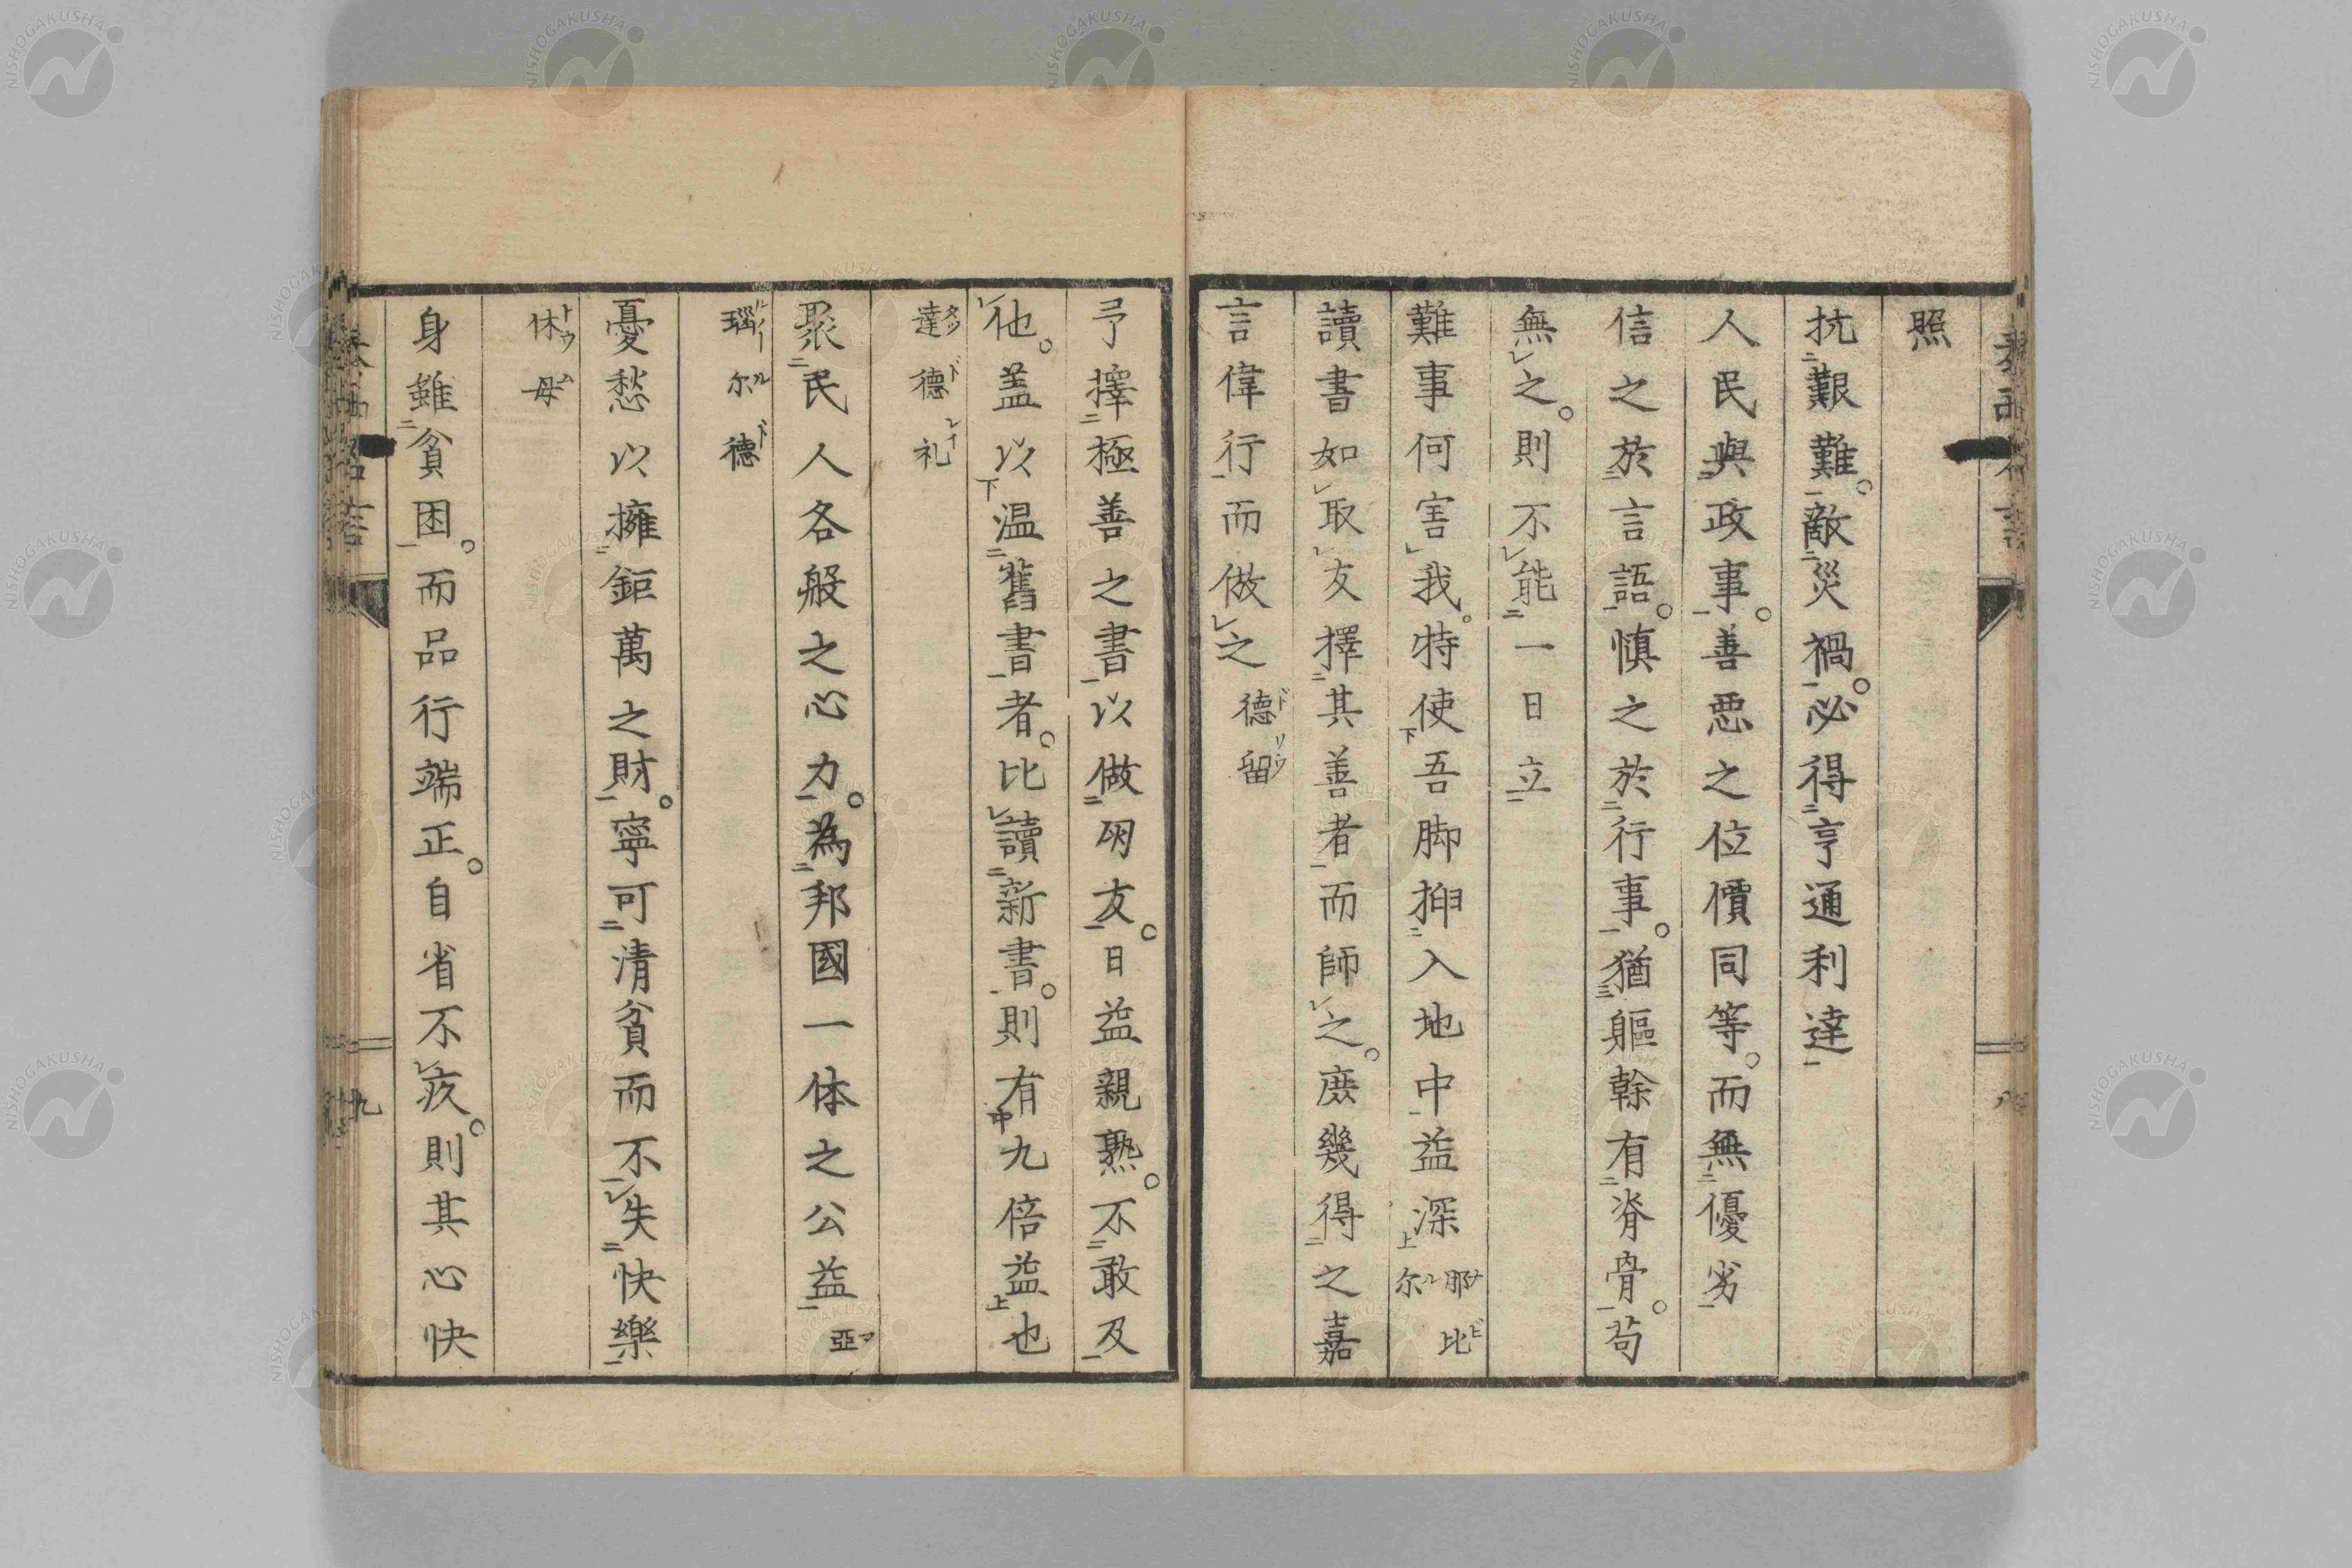 照
抗艱難。敵災禍。必得亨通利達
人民與政事。善惡之位價同等。而無優劣
信之於言語。慎之於行事。猶軀幹有脊骨。苟
無之。則不能一日立
難事何害我。特使吾脚抻入地中益深 那比尔
讀書如取友擇其善者而師之。庶幾得之嘉
言偉行而倣之 德留
予擇極善之書以做朋友。日益親熟。不敢及
他。盖以温舊書者。比讀新書。則有九倍益也
達德礼
聚民人各般之心力。為邦國一体之公益 亞
瑙尔德
憂愁以擁鉅萬之財。寧可清貧而不失快樂
休母
身雖貧困。而品行端正。自省不疚。則其心快
九